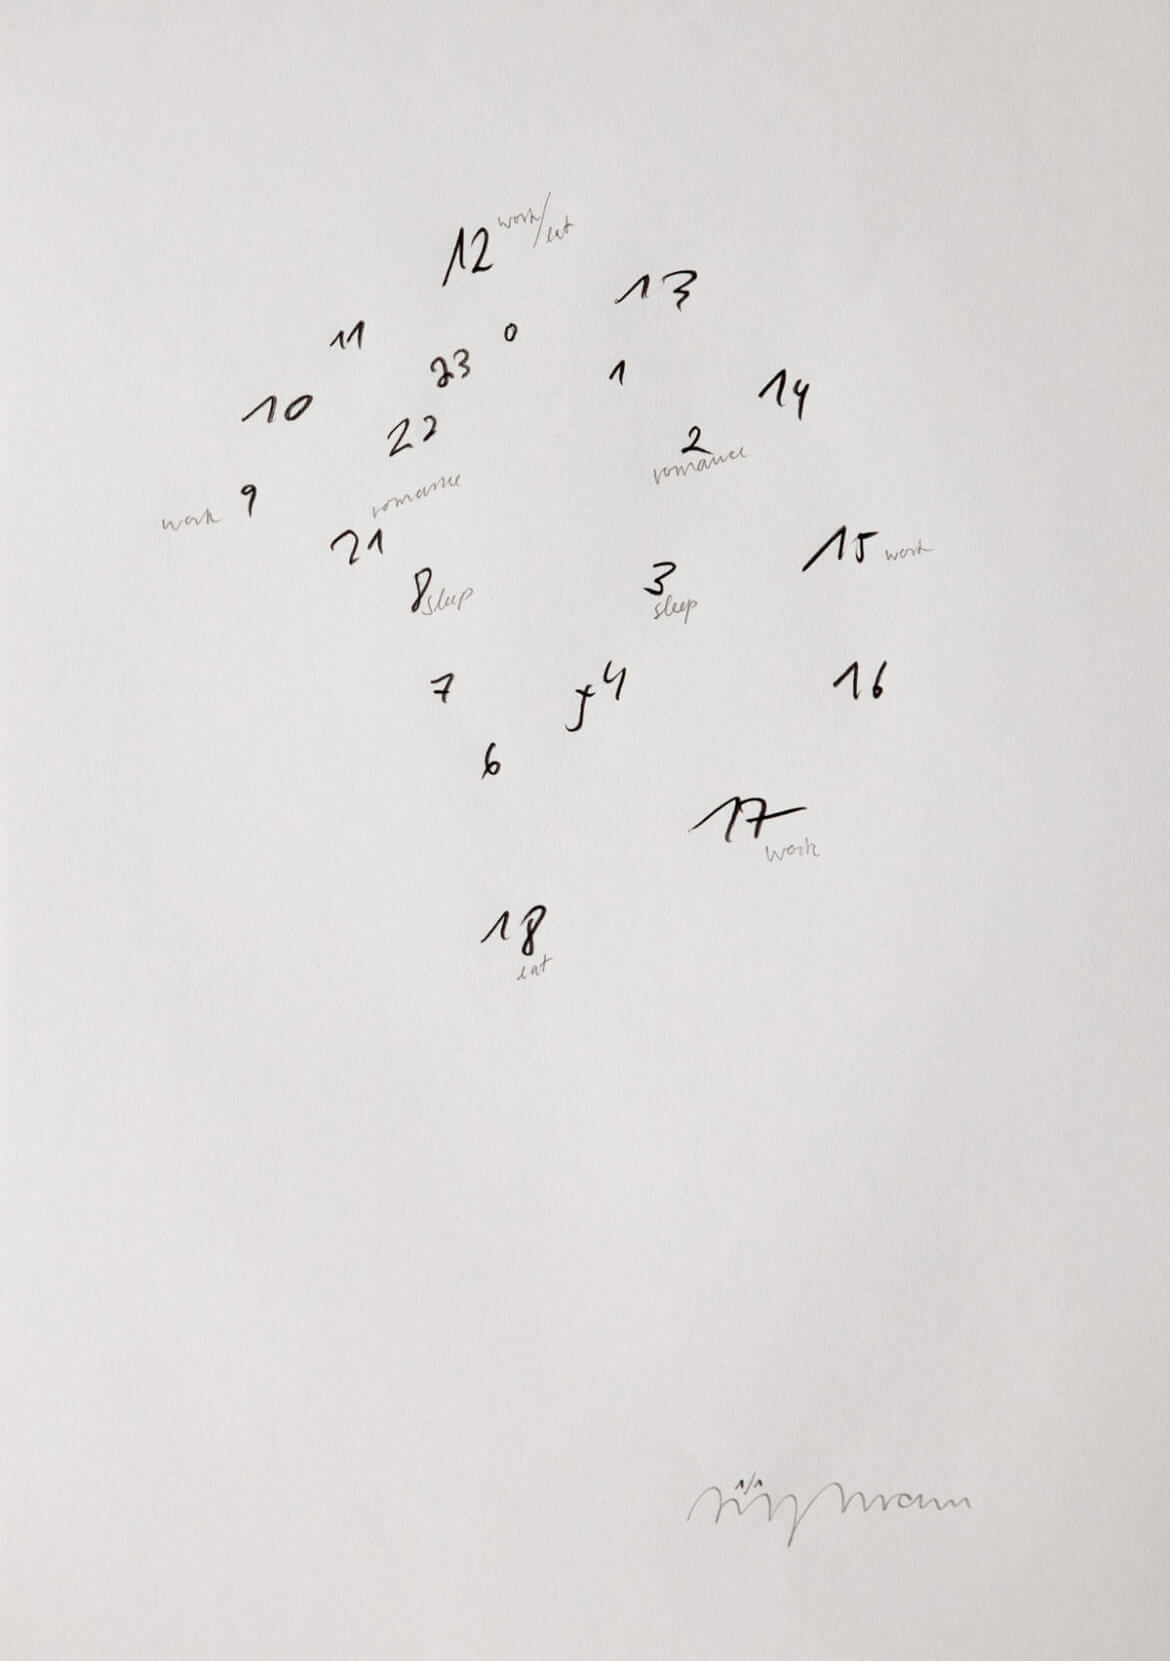 12 work/eat
13
11
0
23
1
14
10
22
2
romance
work 9
romance
21
15 work
8 sleep
3
sleep
7
5 4
16
6
17
work
18
eat
1/1